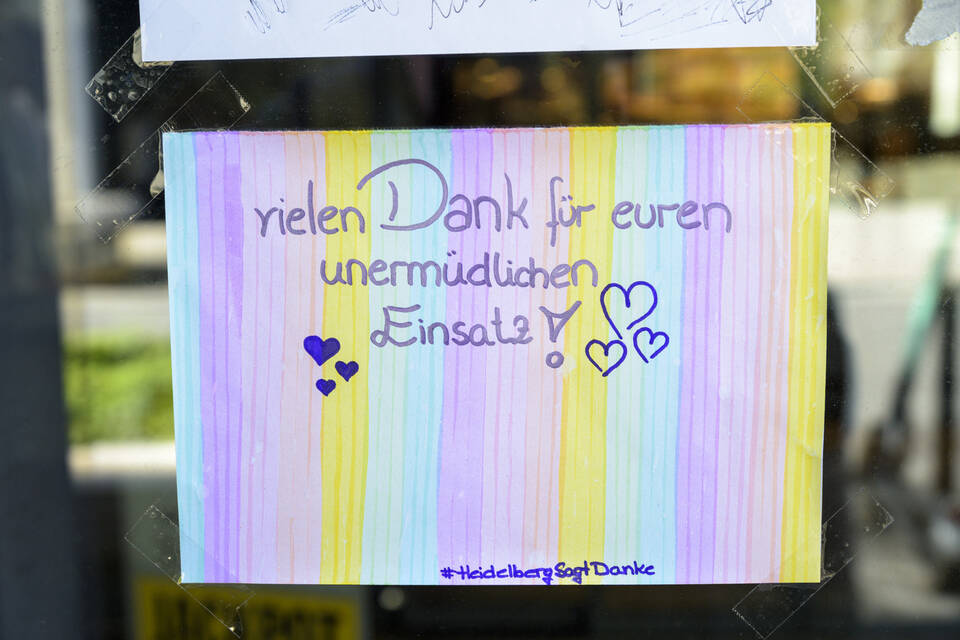 vielen Dank für euren
unermüdlichen
Einsatz!
#HeidelbergSagtDanke